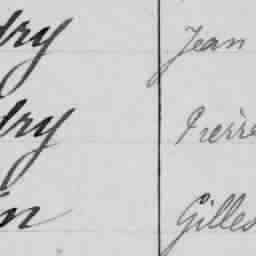 dry Jean
dry Pierre
in Gilles